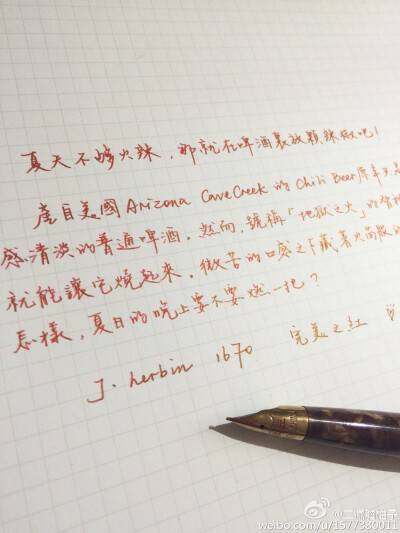 夏天不够火辣，那就在啤酒裏放顆辣椒吧！
產自美國 Arizona Cave Creek 的 Chili Beer 原本只是
感清淡的普通啤酒，然而，號稱「地獄之火」的
就能讓它燒起來，微苦的口感之下藏著火
怎樣，夏日的晚上要不要燃一把？
J. herbin 1670 完美之紅 ♡
weibo.com/u/1577380011